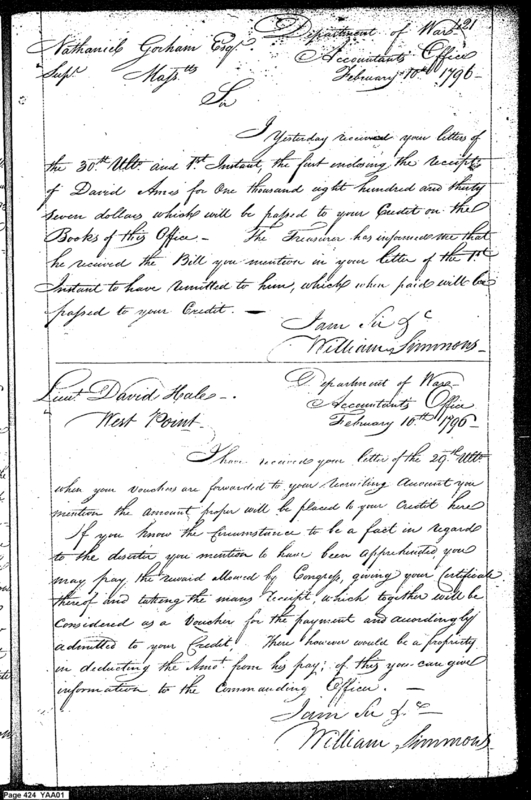 21
Nathaniel Gorham Esqr. Department of War
Supr. Massts. Accountants Office
February 10th 1796
Sir
I Yesterday received your letter of
the 30th. Ulto. and 1st. Instant, the first enclosing the receipts
of David Ames for One thousand eight hundred and thirty
seven dollars which will be passed to your Credit on the
Books of this Office. The Treasurer has informed me that
he received the Bill you mention in your letter of the 1st
Instant to have remitted to him, which when paid will be
passed to your Credit.
I am Sir &c
William Simmons
Lieut. David Hale Department of War
West Point Accountants Office
February 10th 1796
I have received your letter of the 29th Ulto
when your vouchers are forwarded to your recruiting Account you
mention the amount proper will be placed to your Credit here
If you know the Circumstance to be a fact in regard
to the deserter you mention to have been apprehended you
may pay the reward allowed by Congress, giving your Certificate
thereof and taking the mans receipt, which together will be
Considered as a Voucher for the payment and accordingly
admitted to your Credit. There however would be a propriety
in deducting the Amot. from his pay; of this you can give
information to the Commanding Officer.
I am Sir &c
William Simmons
Page 424 YAA01